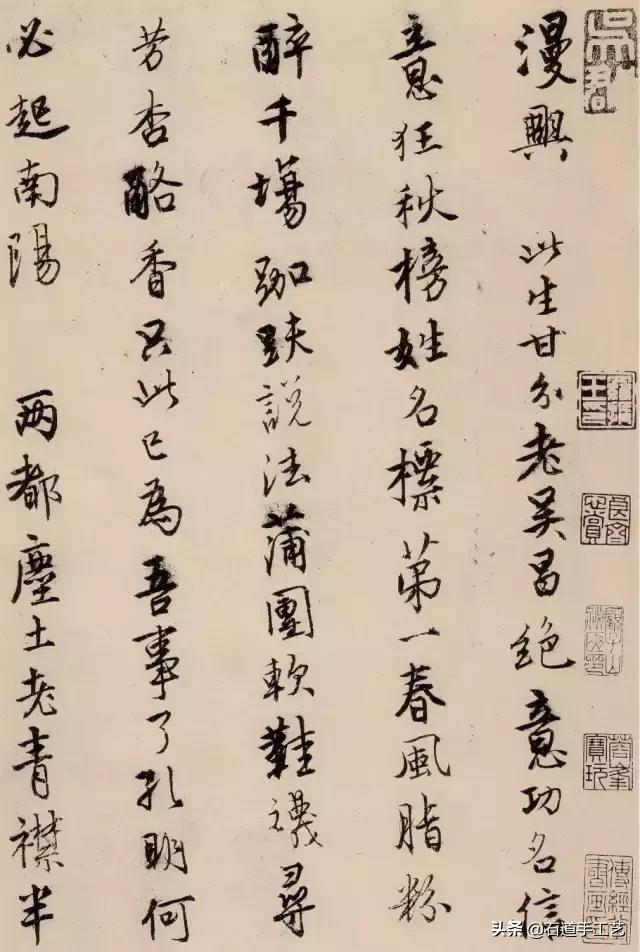 漫興 此生甘分老吳昌絕意功名信
意狂秋榜姓名標第一春風脂粉
醉千場跏趺說法蒲團軟鞋襪尋
芳杏酪香只此已為吾事了孔明何
必起南陽 兩都塵土老青襟半
头条@石道手工艺